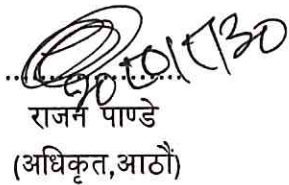 राजन पाण्डे
(अधिकृत,आठौं)